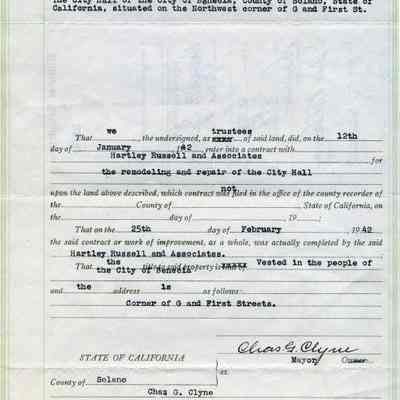 the City Hall of the City of Benecia, County of Solano, State of
California, situated on the Northwest corner of G and First St.
That we, the undersigned, as trustees of said land, did, on the 12th
day of January 42 enter into a contract with
Hartley Russell and Associates for
the remodeling and repair of the City Hall
upon the land above described, which contract was not filed in the office of the county recorder of
the County of , State of California, on
the day of , 19 ;
That on the 25th day of February , 1942
the said contract or work of improvement, as a whole, was actually completed by the said
Hartley Russell and Associates.
That the title to said property is Vested in the people of
the City of Benecia
and the address is as follows:
Corner of G and First Streets.
Chas G. Clyne
Mayor Owner
STATE OF CALIFORNIA
ss
County of Solano
Chas G. Clyne